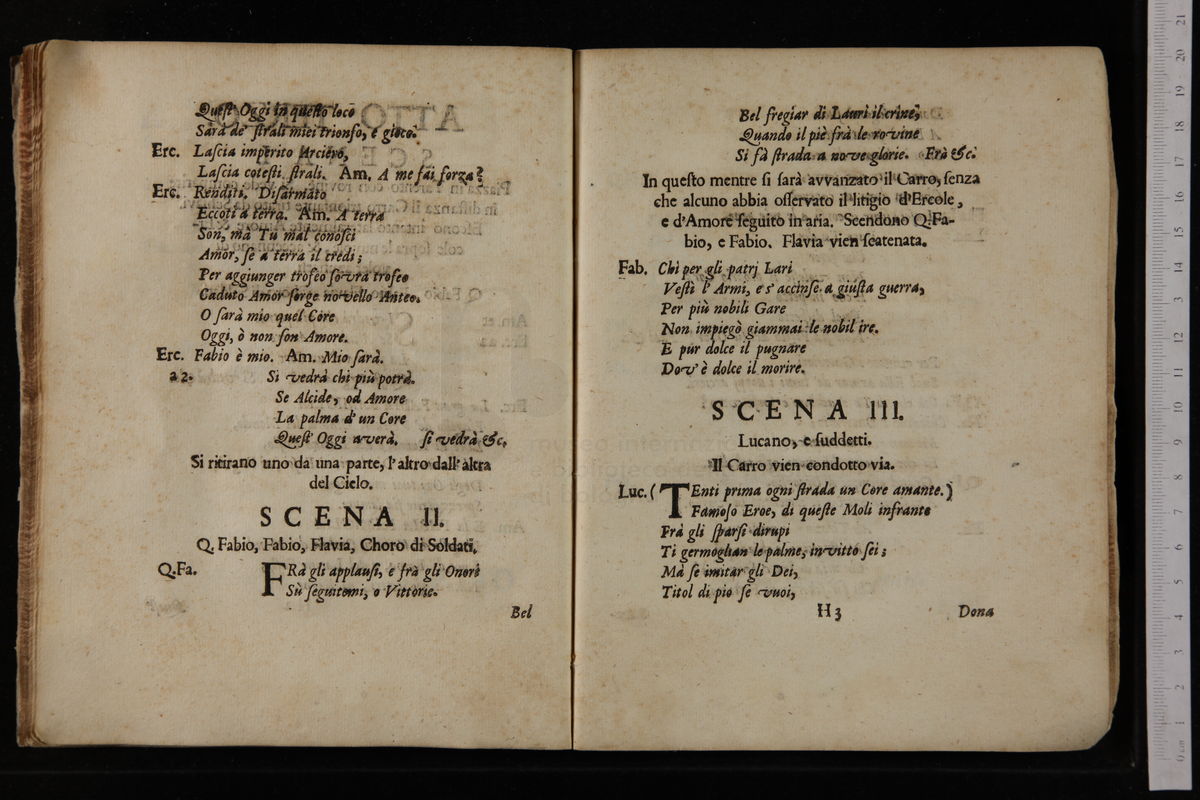 Queſt' Oggi in queſto loco
Sarà de' ſtrali miei trionfo, e gioco.
Erc. Laſcia imperito Arciero,
Laſcia coteſti ſtrali. Am. A me fai forza?
Erc. Renditi. Diſarmato
Eccoti a terra. Am. A terra
Son, ma Tu mal conoſci
Amor, ſe a terra il credi;
Per aggiunger trofeo ſovra trofeo
Caduto Amor ſorge novello Anteo.
O ſarà mio quel Core
Oggi, ò non ſon Amore.
Erc. Fabio è mio. Am. Mio ſarà.
a 2. Si vedrà chi più potrà.
Se Alcide, od Amore
La palma d' un Core
Queſt' Oggi averà. ſi vedrà &c.
Si ritirano uno da una parte, l'altro dall'altra
del Cielo.
SCENA II.
Q. Fabio, Fabio, Flavia, Choro di Soldati.
Q.Fa. FRà gli applauſi, e frà gli Onori
Sù ſeguitemi, o Vittorie.
Bel
Bel fregiar di Lauri il crine,
Quando il piè frà le rovine
Si fà ſtrada a nove glorie. Frà &c.
In queſto mentre ſi ſarà avvanzato il Carro, ſenza
che alcuno abbia oſſervato il litigio d'Ercole,
e d'Amore ſeguito in aria. Scendono Q. Fa-
bio, e Fabio. Flavia vien ſcatenata.
Fab. Chi per gli patrj Lari
Veſtì l' Armi, e s' accinſe a giuſta guerra,
Per più nobili Gare
Non impiegò giammai le nobil ire.
E pur dolce il pugnare
Dov' è dolce il morire.
SCENA III.
Lucano, e ſuddetti.
Il Carro vien condotto via.
Luc. (TEnti prima ogni ſtrada un Core amante.)
Famoſo Eroe, di queſte Moli infrante
Frà gli ſparſi dirupi
Ti germoglian le palme, invitto ſei;
Mà ſe imitar gli Dei,
Titol di pio ſe vuoi,
H3
Dona
0 cm 1 2 3 4 5 6 7 8 9 10 11 12 13 14 15 16 17 18 19 20 21